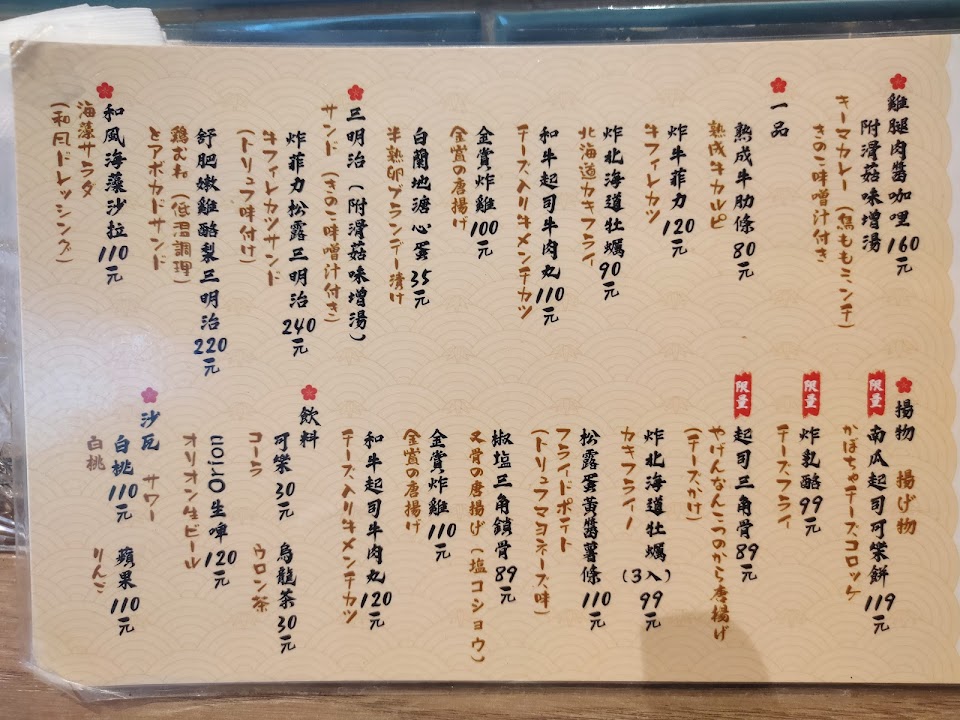 雞腿肉醬咖哩 160元
附滑菇味增湯
キーマカレー(鶏ももミンチ)
きのこ味噌汁付き
一品
熟成牛肋條 80元
熟成牛カルビ
炸牛菲力 120元
牛フィレカツ
炸北海道牡蠣 90元
北海道カキフライ
和牛起司牛肉丸 110元
チーズ入り牛メンチカツ
金賞炸雞 100元
金賞の唐揚げ
白蘭地溏心蛋 35元
半熟卵ブランデー漬け
三明治(附滑菇味增湯)
サンド(きのこ味噌汁付き)
炸菲力松露三明治 240元
牛フィレカツサンド
(トリュフ味付け)
舒肥嫩雞酪梨三明治 220元
鶏むね(低温調理)
とアボカドサンド
和風海藻沙拉 110元
海藻サラダ
(和風ドレッシング)
揚物 揚げ物
限量 南瓜起司可樂餅 119元
かぼちゃチーズコロッケ
限量 炸乳酪 99元
チーズフライ
限量 起司三角骨 89元
やげんなんこつのから唐揚げ
(チーズかけ)
炸北海道牡蠣(3入) 99元
カキフライー
松露蛋黃醬薯條 110元
フライドポテト
(トリュフマヨネーズ味)
椒塩三角鎖骨 89元
叉骨の唐揚げ(塩コショウ)
金賞炸雞 110元
金賞の唐揚げ
和牛起司牛肉丸 120元
チーズ入り牛メンチカツ
飲料
可樂 30元 烏龍茶 30元
コーラ ウロン茶
Orion生啤 120元
オリオン生ビール
沙瓦 サワー
白桃 110元 蘋果 110元
白桃 りんご